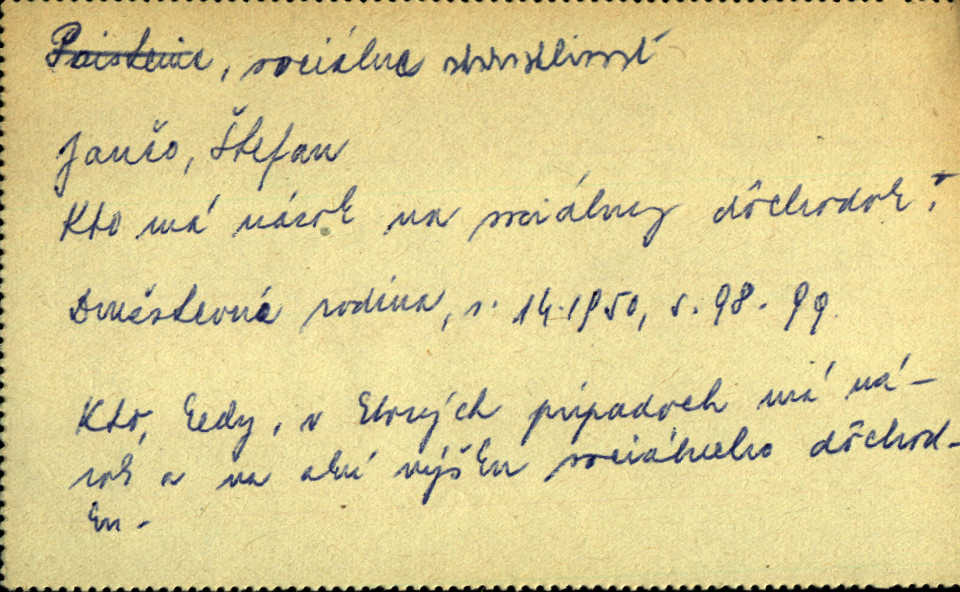 Poistenie, sociálna starostlivosť
Jančo, Štefan
Kto má nárok na sociálny dôchodok?
Družstevná rodina, r. 14.1950, s. 98-99
Kto, kedy, v ktorých prípadoch má ná-
rok a na akú výšku sociálneho dôchod-
ku-